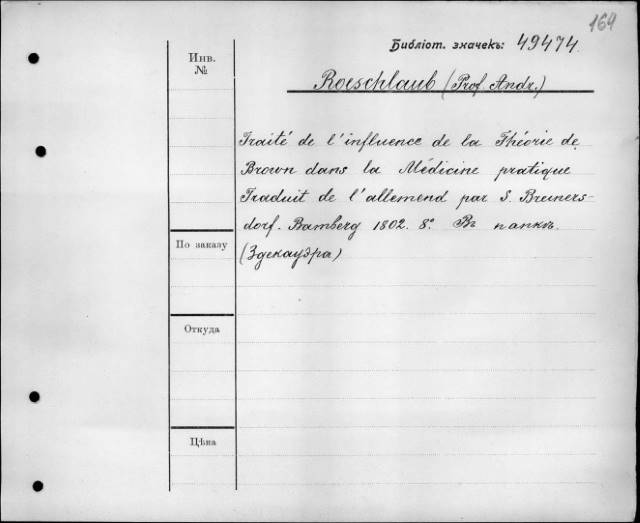 164
Библіот. значекъ: 49474.
Инв. №
Roeschlaub (Prof. Andr.)
Traité de l'influence de la Théorie de
Brown dans la Médicine pratique
Traduit de l'allemend par S. Breiners-
dorf. Bamberg 1802. 8°. Въ папкѣ.
По заказу
(Здекауэра)
Откуда
Цѣна